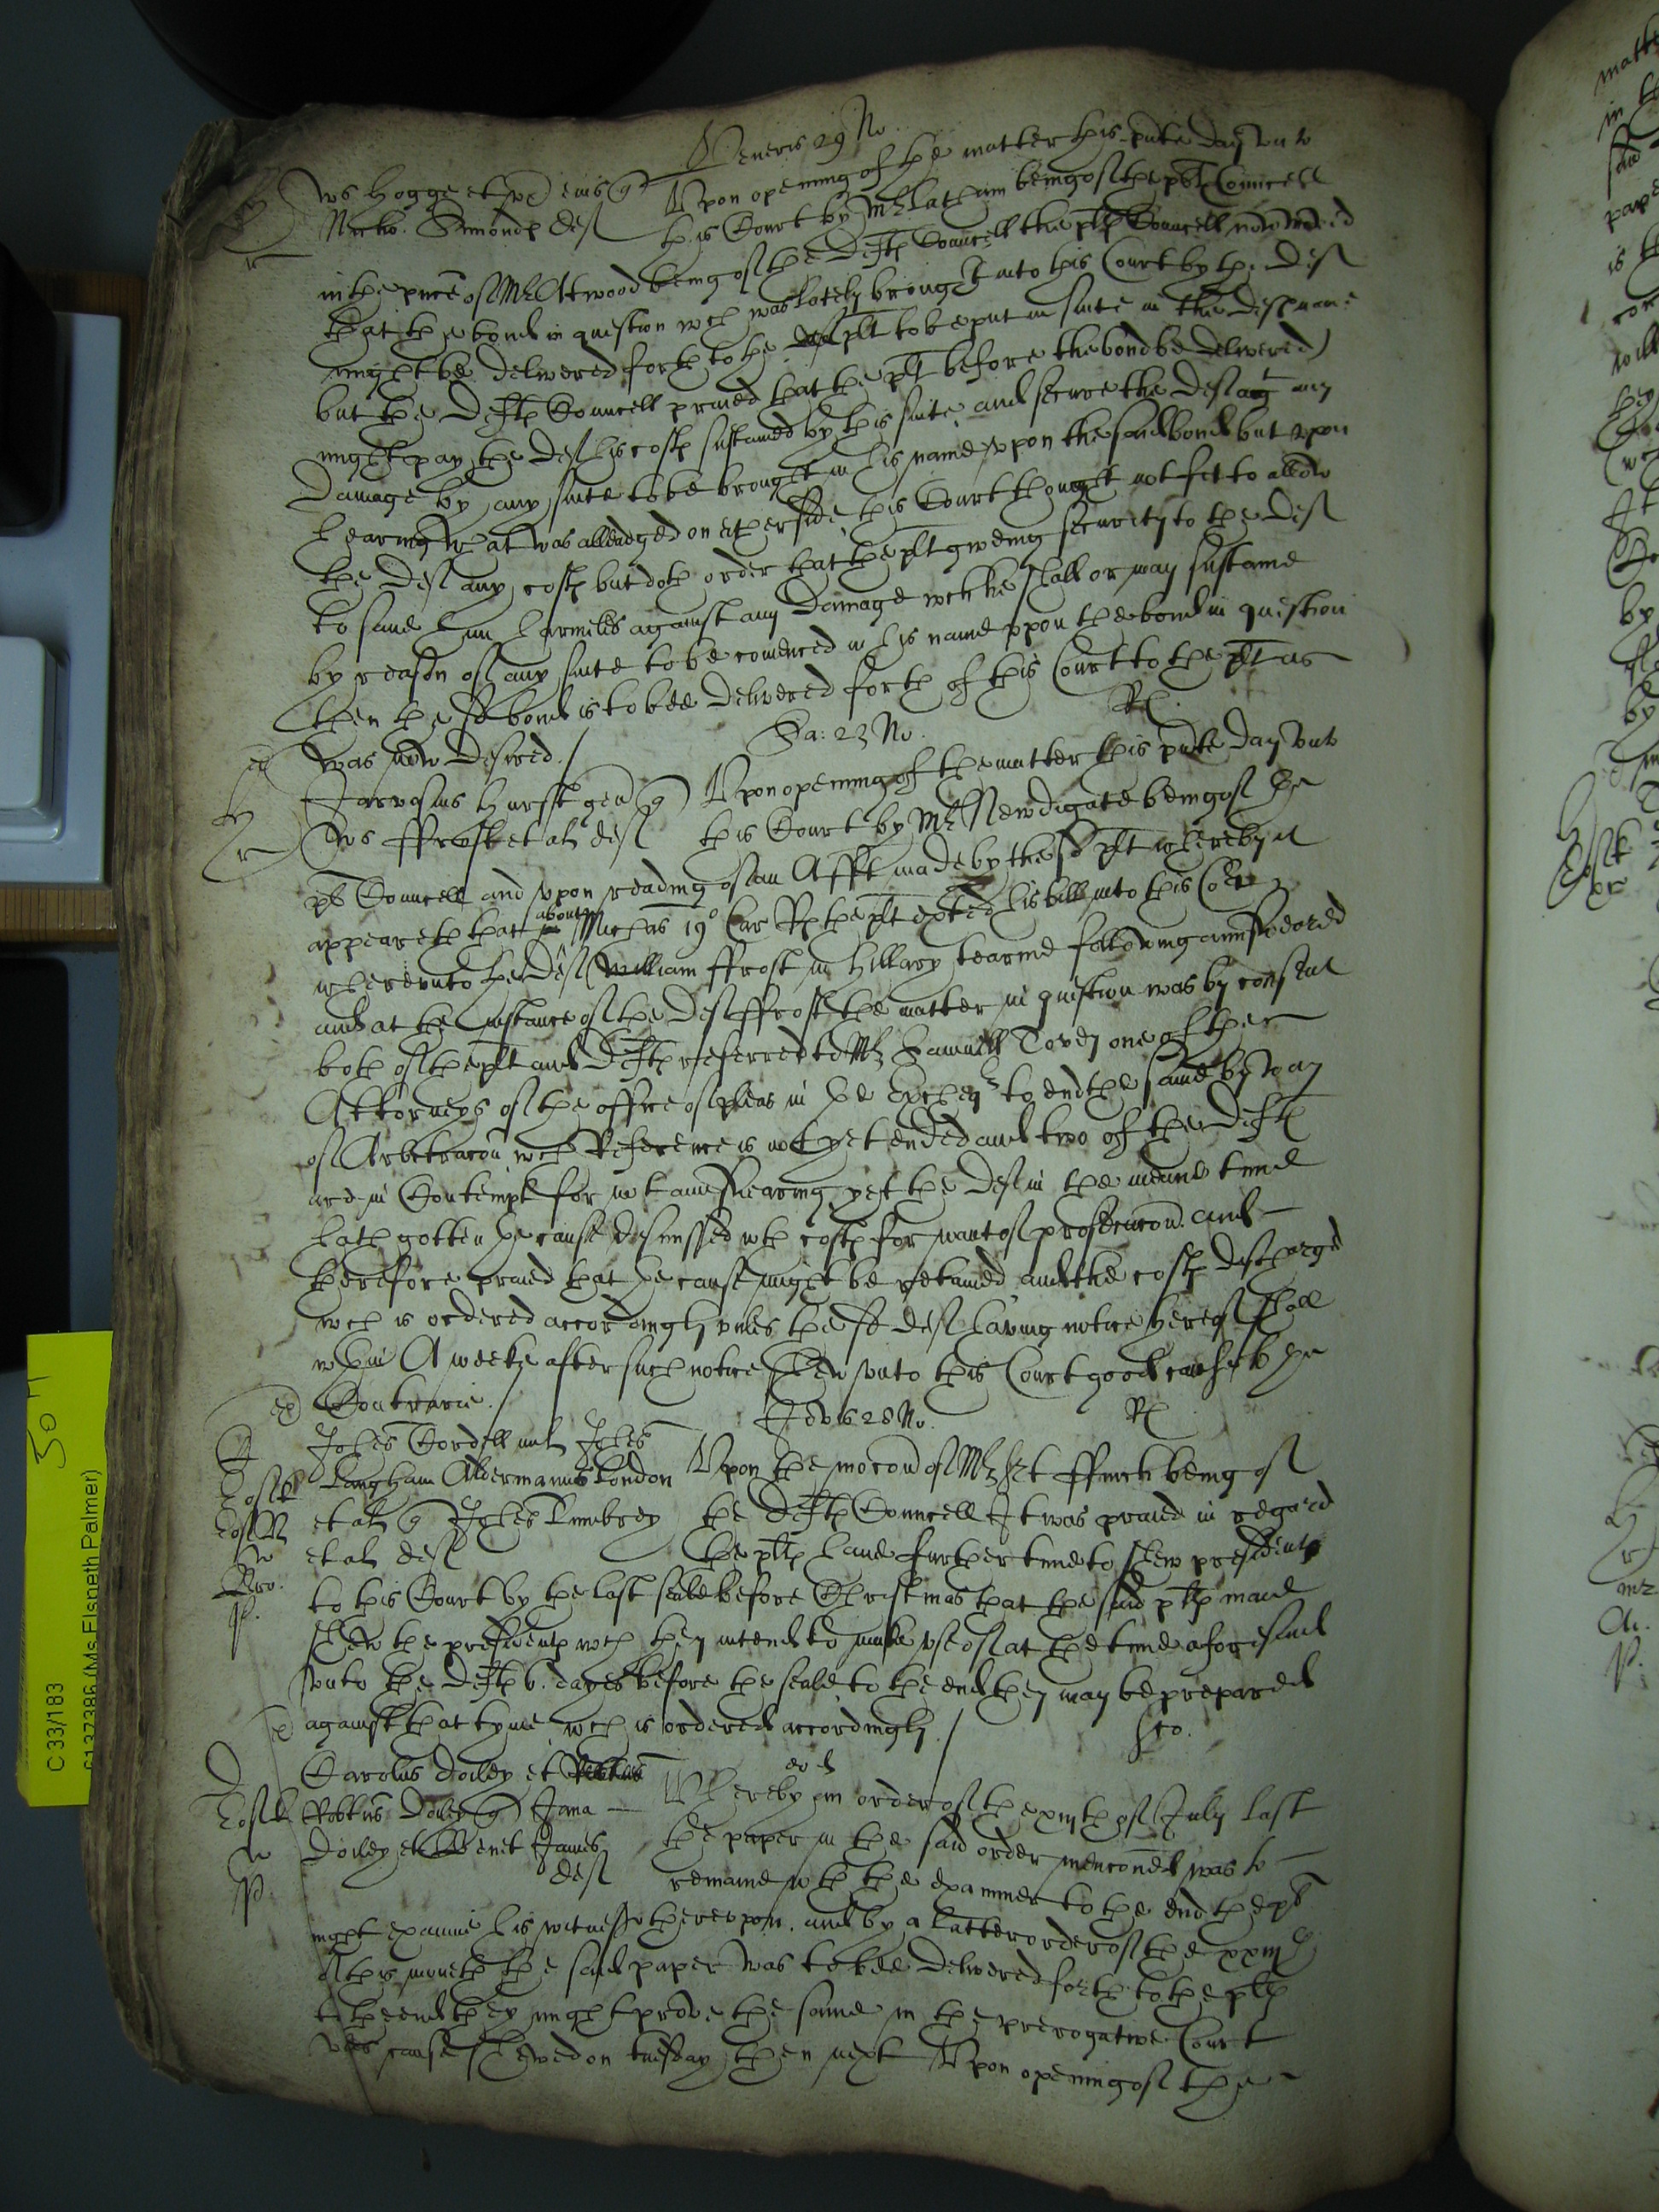 Veneris 29 No.
Hogge et ux eius q Upon opening of the matter this pnte day unto
Nicho. Simondes def this Court by Mr Latham being of the plt Councell
in the pnce of Mr Atwood being of the Defts Councell the plts Councell now moved
that the bond in question wch was lately brought into this Court by the Def
might be delivered forth to the plt to be put in suite in the Defs name
but the Defts Councell praied that the plt before the bond be delivered
might pay the Def his costs sustained by this suite and secure the Def agt any
Damage by any suite to be brought in his name upon the said bond but upon
hearing what was alleadged on either side this Court thought not fit to allow
the Def any costs but doth order that the plt giveing security to the Def
to save him harmles against any Damage wch he shall or may sustaine
by reason of any suite to be comenced in his name uppon the bond in question
then the sd bond is to bee delivered forth of this Court to the plt as
was now desired. / R
Sa: 23 No.
Jarvasius Hurst gen q Upon opening of the matter this pnte day unto
Ws ffrost et al def this Court by Mr Newdigate being of the
plt Councell and upon reading of an Afft made by the sd plt whereby it
appeareth that about Michas 19o Car R the plt exhted his bill into this Cort
whereunto the Def William ffrost in Hillary tearme following answeared
and at the instance of the Def ffrost the matter in question was by consent
both of the plt and Defts referred to Mr Samuell Tovey one of the
Attorneys of the office of pleas in the Excheqr to end the same by way
of Arbitracon wch Reference is not yet ended and two of the Defts
are in Contempt for not answearing yet the Def in the meane time
hath gotten the cause dismissed wth costs for want of prosecucon and
therefore praied that the cause might be retained and the costs discharged
wch is ordered accordingly unles the sd def having notice hereof shall
wthin A weeke after such notice shew unto this Court good cause to the
Contrarie. / R
Jovis 28 No.
Johes Cordell miles Johes
Langham Aldermanus London Upon the mocon of Mr Srt ffinch being of
et al q Johes Kimbrey the Defts Councell It was praied in regard
et al def the plts have further time to shew presidents
to this Court by the last seale before Christmas that the said plts maie
shew the presidents wch they intend to make use of at the time aforesaid
unto the Defts 6. dayes before the seale to the end they may be prepared
against that tyme wch is ordered accordingly /
Carolus Doiley et eod
Robtus Doiley q Jana Whereby an order of the xiijth of July last
Doiley et Benet James the paper in the said order menconed was to
def remaine wth the examiner to the end the plt
might examine his witnesses thereupon. and by a latter order of the xxiijth
of this moneth the said paper was to bee delivered forth to the plts
to the end they might prove the same in the prerogative Court
unles cause shewed on tuesday then next Upon opening of the
C 33/183
(Ms Elspeth Palmer)